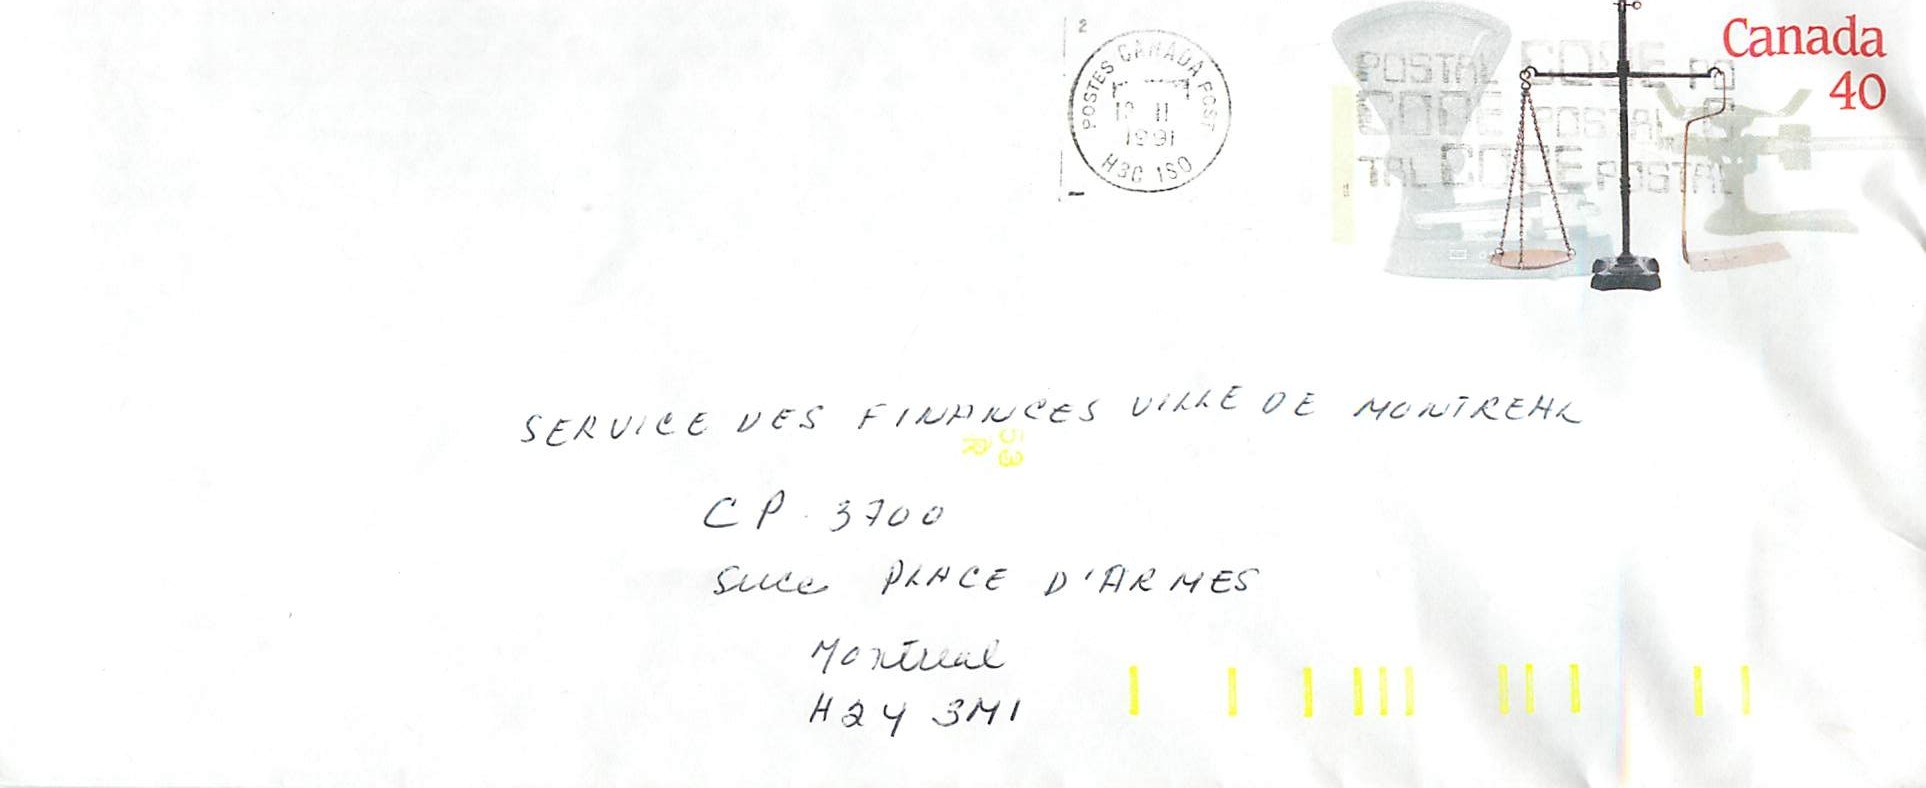 2
POSTES CANADA POST
II
1991
H3C 1S0
POSTAL CODE PO
CODE POSTAL C
TAL CODE POSTAL
Canada
40
SERVICE DES FINANCES VILLE DE MONTREAL
53
R
CP. 3700
Succ PLACE D'ARMES
Montreal
H2Y 3M1